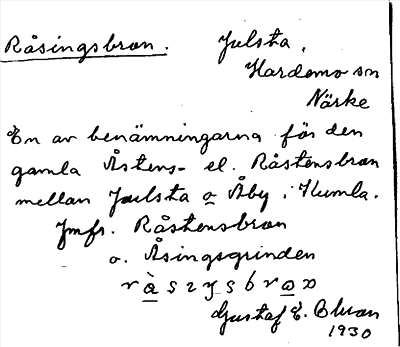 Råsingsbron. Julsta,
Hardemo sn
Närke
En av benämningarna för den
gamla Åstens- el. Råstensbron
mellan Julsta o Åby i Kumla.
Jmfr. Råstensbron
o. Åsingsgrinden
Gustaf E.
1930